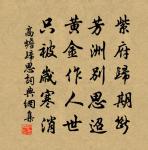 紫府歸期斷
芳洲別思迢
黃金作人世
只被歲寒消
高蟾歸思詞典網集